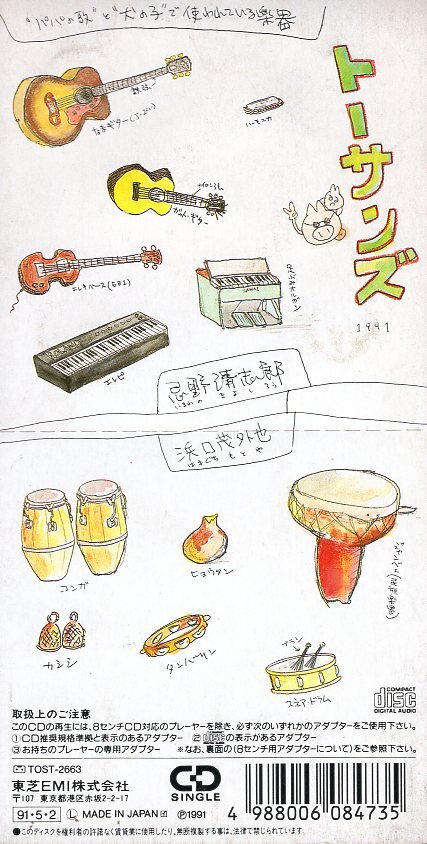 "パパの歌"と"犬の子"で使われている楽器
トーサンズ
1991
鉄弦
なまギター(J-200)
ハーモニカ
ナイロン弦
ガット・ギター
エレキベース(EB1)
足ぶみオルガン
エレピ
忌野清志郎
いまわの きよしろう
浜口茂外也
はまぐち もとや
コンガ
ヒョウタン
カシシ
タンバリン
ブラシ
スネアドラム
COMPACT
disc
DIGITAL AUDIO
取扱上のご注意
このCDの再生には、8センチCD対応のプレーヤーを除き、必ず次のいずれかのアダプターをご使用下さい。
①CD推奨規格準拠と表示のあるアダプター ②disc の表示があるアダプター
③お持ちのプレーヤーの専用アダプター ※なお、裏面の(8センチ用アダプターについて)をご参照下さい。
TOST-2663
東芝EMI株式会社
〒107 東京都港区赤坂2-2-17
91・5・2 Ⓛ MADE IN JAPAN Ⓟ1991
CD
SINGLE
4 988006 084735
●このディスクを権利者の許諾なく賃貸業に使用したり、無断複製する事は、法律で禁じられています。